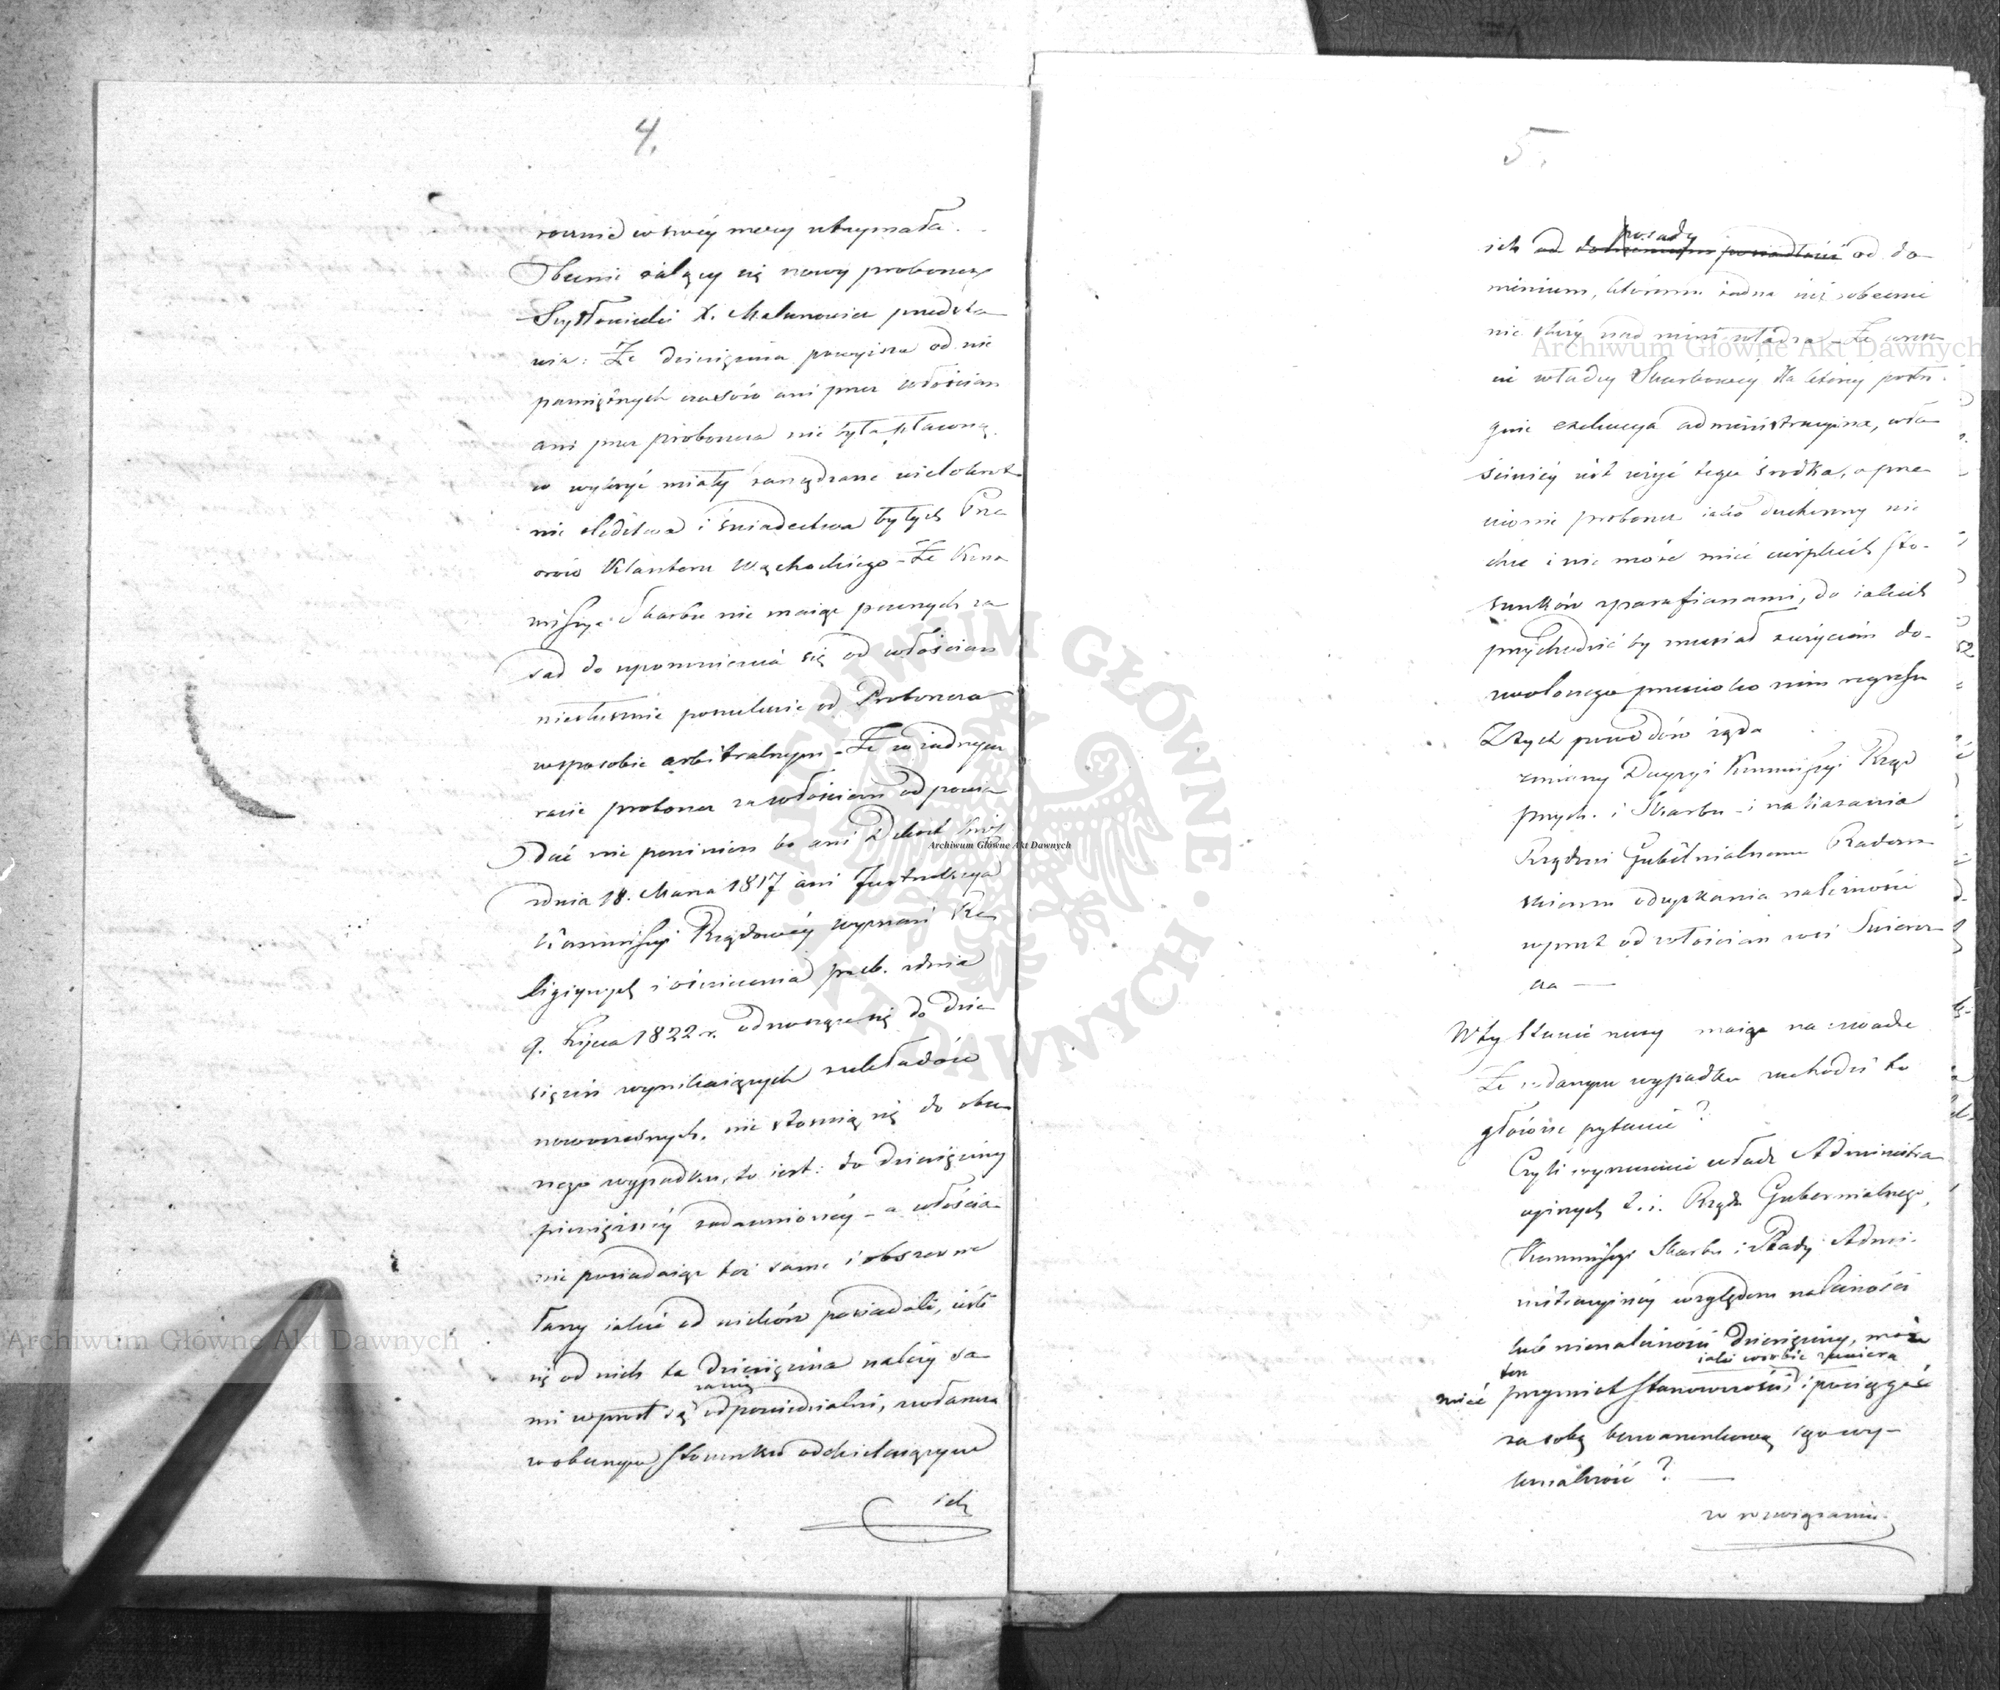 4.
rocznie w swéy mocy utrzymała.
Obecnie żalący się nowy proboszcz
X. Malanowicz przedsta
wia: Że dziesięcina powyższa od nie
pamiętnych czasów ani przez włościan
ani przez proboszcza nie była płaconą.
w wykryć miały zarządzane wielokrot
nie śledztwa i świadectwa byłych Prze
orów Klasztoru Wąchockiego – Że Kom
missya Skarbu nie maiąc pewnych za
sad do upomnienia się od włościan
niesłusznie poszukuie od Proboszcza
w sposobie arbitralnym – Że w żadnym
razie proboszcz za włościan odpowia
dać nie powinien bo ani Dekret Król.
z dnia 18. Marca 1817 ani Instrukcya
Kommissyi Rządowéy wyznań Re
ligiynych i oświecenia publ. z dnia
9. Lipca 1822 r. odnosząca się do dzie
sięcin wynikaiących z układów
nowoczesnych, nie stosuią się do obec
nego wypadku, to iest: do dziesięciny
pieniężnéy zadawnionéy – a włościa
nie posiadaiąc też same i obszerne
łany iakie od wieków posiadali, ieśli
się od nich ta dziesięcina należy sa
mi wprost są odpowiedzialni, zwłaszcza
w obecnym stosunku oddzielaiącym
ich
5.
posady
ich od od do-
minium, któremu żadna iuż obecnie
nie służy nad niemi władza – Że wresz
cie władzy Skarbowéy dla któréy posłu
guie exekucya administracyina, wła
ściwiéy iest użyć tego środka, a prze
ciwnie proboszcz iako duchowny nie
chce i nie może mieć cierpkich sto-
sunków z parafianami, do iakich
przychodzić by musiał użyciem do-
zwolonego przeciwko nim regressu
Z tych powodów żąda
zmiany Decyzyi Kommissyi Rząd
przych. i Skarbu – i nakazania
Rządowi Gubernialnemu Radom
skiemu odzyskania należności
wprost od włościan wsi Świercz
ka —
W tym stanie rzeczy maiąc na uwadze
Że w danym wypadku zachodzi to
główne pytanie?
Czyli orzeczenie władz Administra
cyinych t. i. Rządu Gubernialnego,
Kommissyi Skarbu i Rady Admi-
nistracyinéy względem należności
lub nienależności dziesięciny, może
iaki w sobie zawiera
ten
mieć przymiot stanowczości, i pociągać
za sobą bezwarunkową iéy wy-
konalność? —
w rozwiązaniu